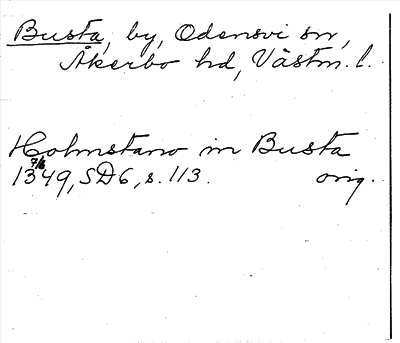 Busta, by, Odensvi sn,
Åkerbo hd, Västm. l.
Holmstano in Busta
1349 7/6, SD6, s. 113. orig.